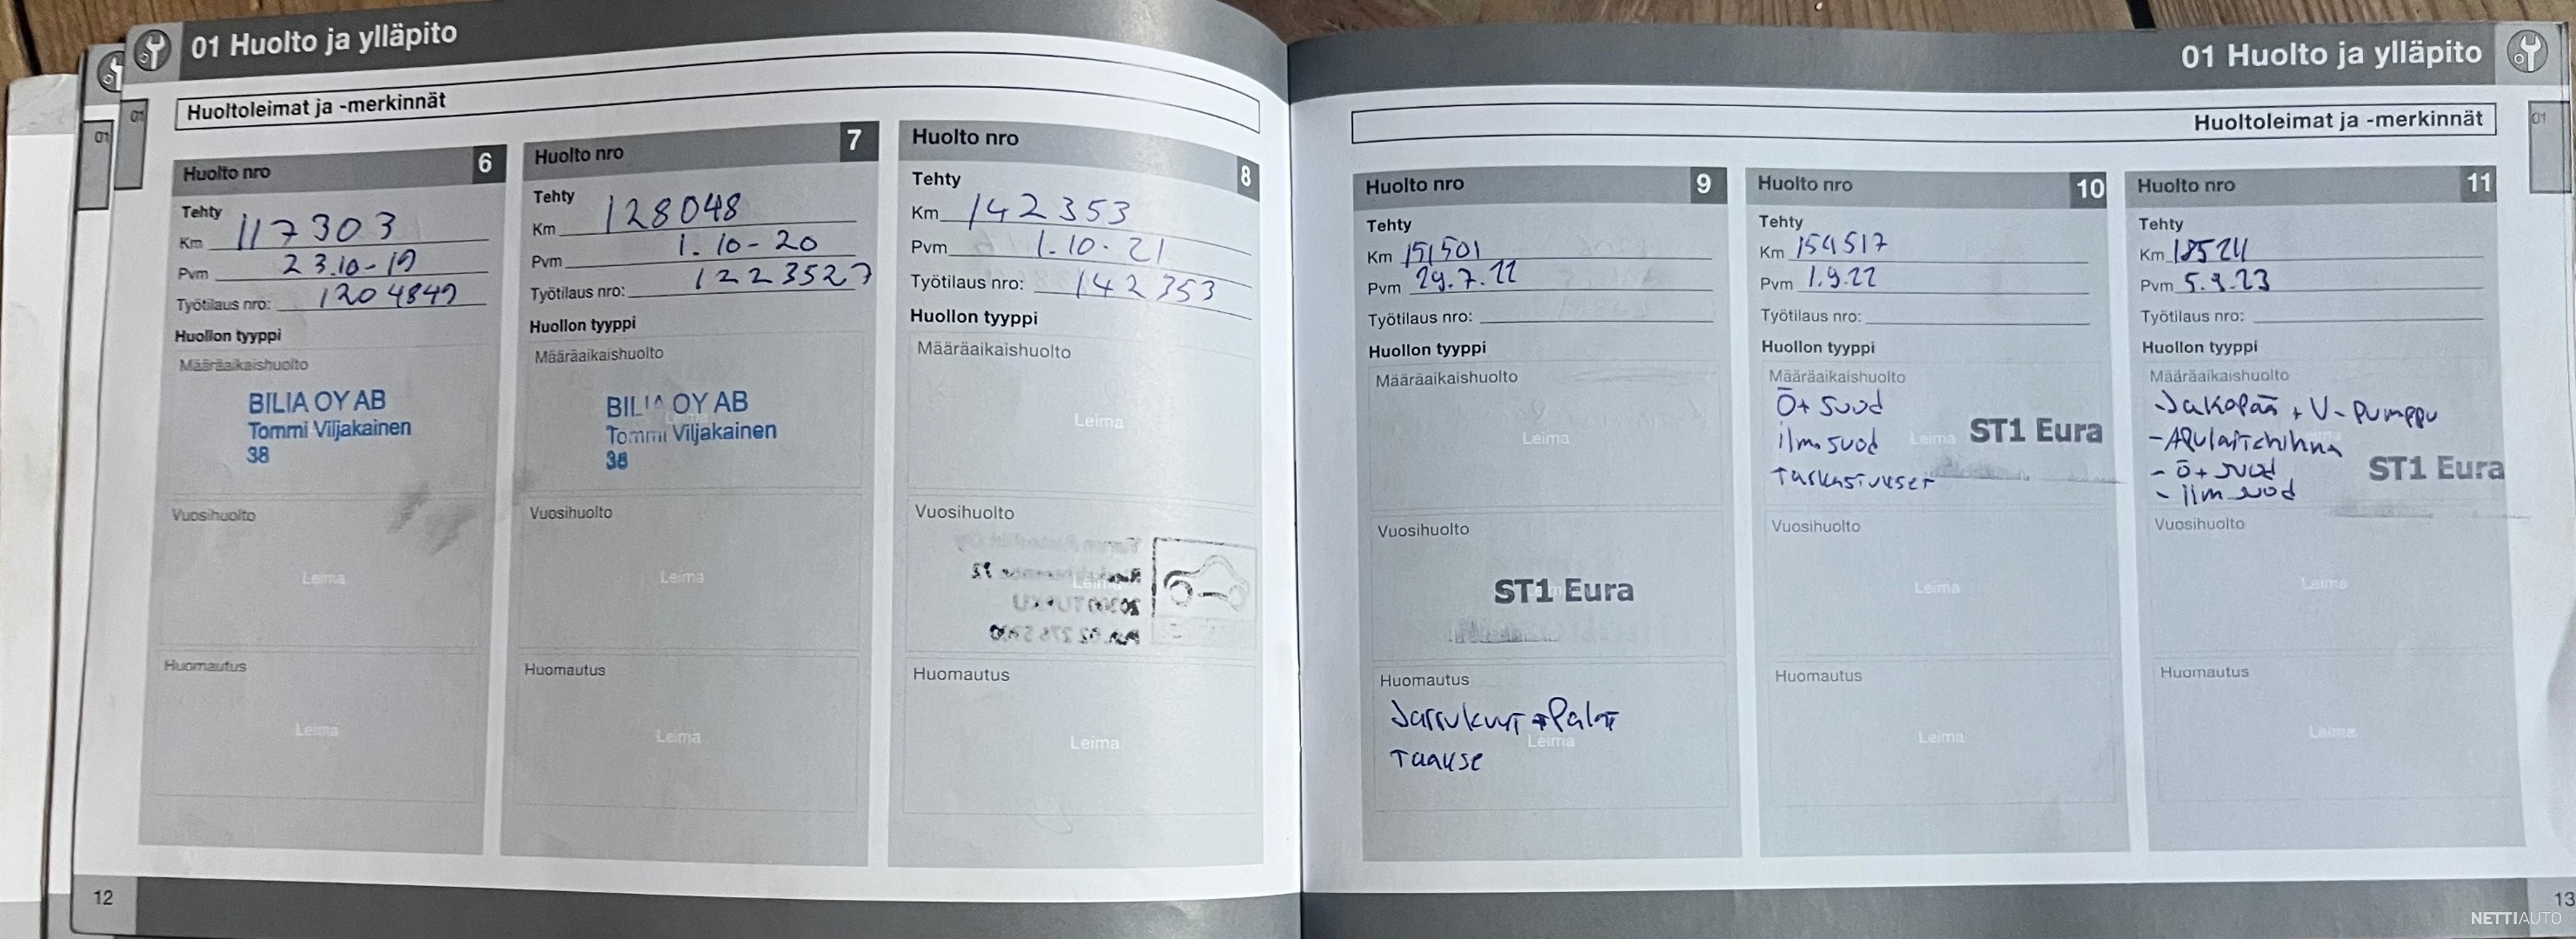 01 Huolto ja ylläpito
01
01
Huoltoleimat ja -merkinnät
Huolto nro 6
Tehty
Km 117303
Pvm 23.10-19
Työtilaus nro: 1204849
Huollon tyyppi
Määräaikaishuolto
BILIA OY AB
Tommi Viljakainen
38
Vuosihuolto
Leima
Huomautus
Leima
Huolto nro 7
Tehty
Km 128048
Pvm 1.10-20
Työtilaus nro: 1223527
Huollon tyyppi
Määräaikaishuolto
BILIA OY AB
Tommi Viljakainen
38
Vuosihuolto
Leima
Huomautus
Leima
Huolto nro 8
Tehty
Km 142353
Pvm 1.10.21
Työtilaus nro: 142353
Huollon tyyppi
Määräaikaishuolto
Leima
Vuosihuolto
Leima
Huomautus
Leima
12
01 Huolto ja ylläpito
Huoltoleimat ja -merkinnät
01
Huolto nro 9
Tehty
Km 151501
Pvm 29.7.22
Työtilaus nro:
Huollon tyyppi
Määräaikaishuolto
Leima
Vuosihuolto
ST1 Eura
Huomautus
Jarrukurit + Palat
Leima
Taakse
Huolto nro 10
Tehty
Km 154517
Pvm 1.9.22
Työtilaus nro:
Huollon tyyppi
Määräaikaishuolto
Ö+ suod
ilm.suod Leima ST1 Eura
Tarkastukset
Vuosihuolto
Leima
Huomautus
Leima
Huolto nro 11
Tehty
Km
Pvm 5.9.23
Työtilaus nro:
Huollon tyyppi
Määräaikaishuolto
-Jakopää + V-Pumppu
-Apulaitehihna
- ö+ suod ST1 Eura
- ilm suod
Vuosihuolto
Leima
Huomautus
Leima
13
NETTIAUTO